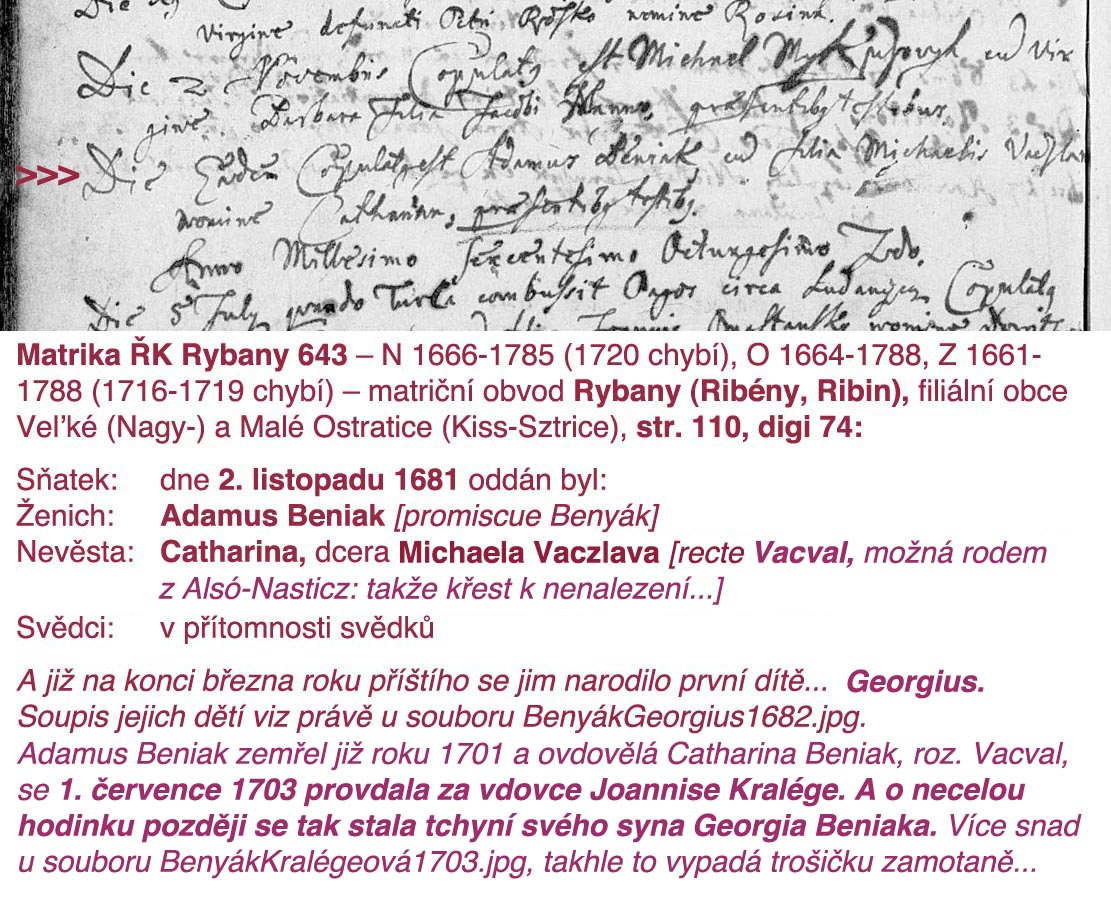 virgine defuncti Petri Roško nomine Rosina.
Die 2 Novembris Copulatq est Michael cu Vir
gine Barbara filia Jacobi Hanno, præsentibq testibus.
>>> Die Eadem Copulatq est Adamus Beniak cu filia Michaelis Vaczlav
nomine Catharina, præsentibq testibq.
Anno Millesimo Sexcentesimo Octuagesimo 2do.
Die 5 July quando Turca combussit Pagos circa Copulatq
Matrika ŘK Rybany 643 – N 1666-1785 (1720 chybí), O 1664-1788, Z 1661-
1788 (1716-1719 chybí) – matriční obvod Rybany (Ribény, Ribin), filiální obce
Veľké (Nagy-) a Malé Ostratice (Kiss-Sztrice), str. 110, digi 74:
Sňatek: dne 2. listopadu 1681 oddán byl:
Ženich: Adamus Beniak [promiscue Benyák]
Nevěsta: Catharina, dcera Michaela Vaczlava [recte Vacval, možná rodem
z Alsó-Nasticz: takže křest k nenalezení...]
Svědci: v přítomnosti svědků
A již na konci března roku příštího se jim narodilo první dítě... Georgius.
Soupis jejich dětí viz právě u souboru BenyákGeorgius1682.jpg.
Adamus Beniak zemřel již roku 1701 a ovdovělá Catharina Beniak, roz. Vacval,
se 1. července 1703 provdala za vdovce Joannise Kralége. A o necelou
hodinku později se tak stala tchyní svého syna Georgia Beniaka. Více snad
u souboru BenyákKralégeová1703.jpg, takhle to vypadá trošičku zamotaně...